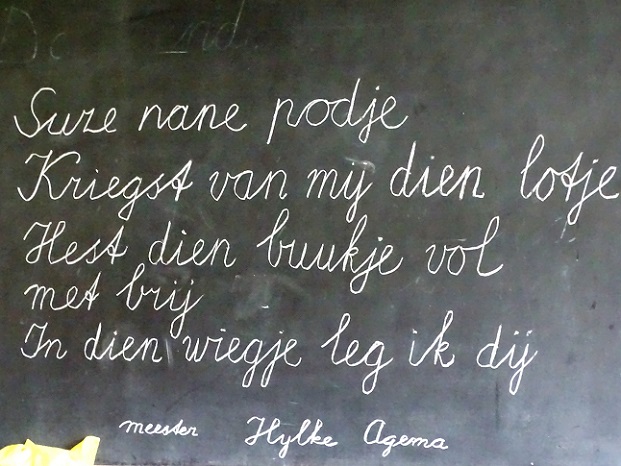 Suze nane podje
Kriegst van mij dien lotje
Hest dien buukje vol
met brij
In dien wiegje leg ik dij
meester Hylke Agema